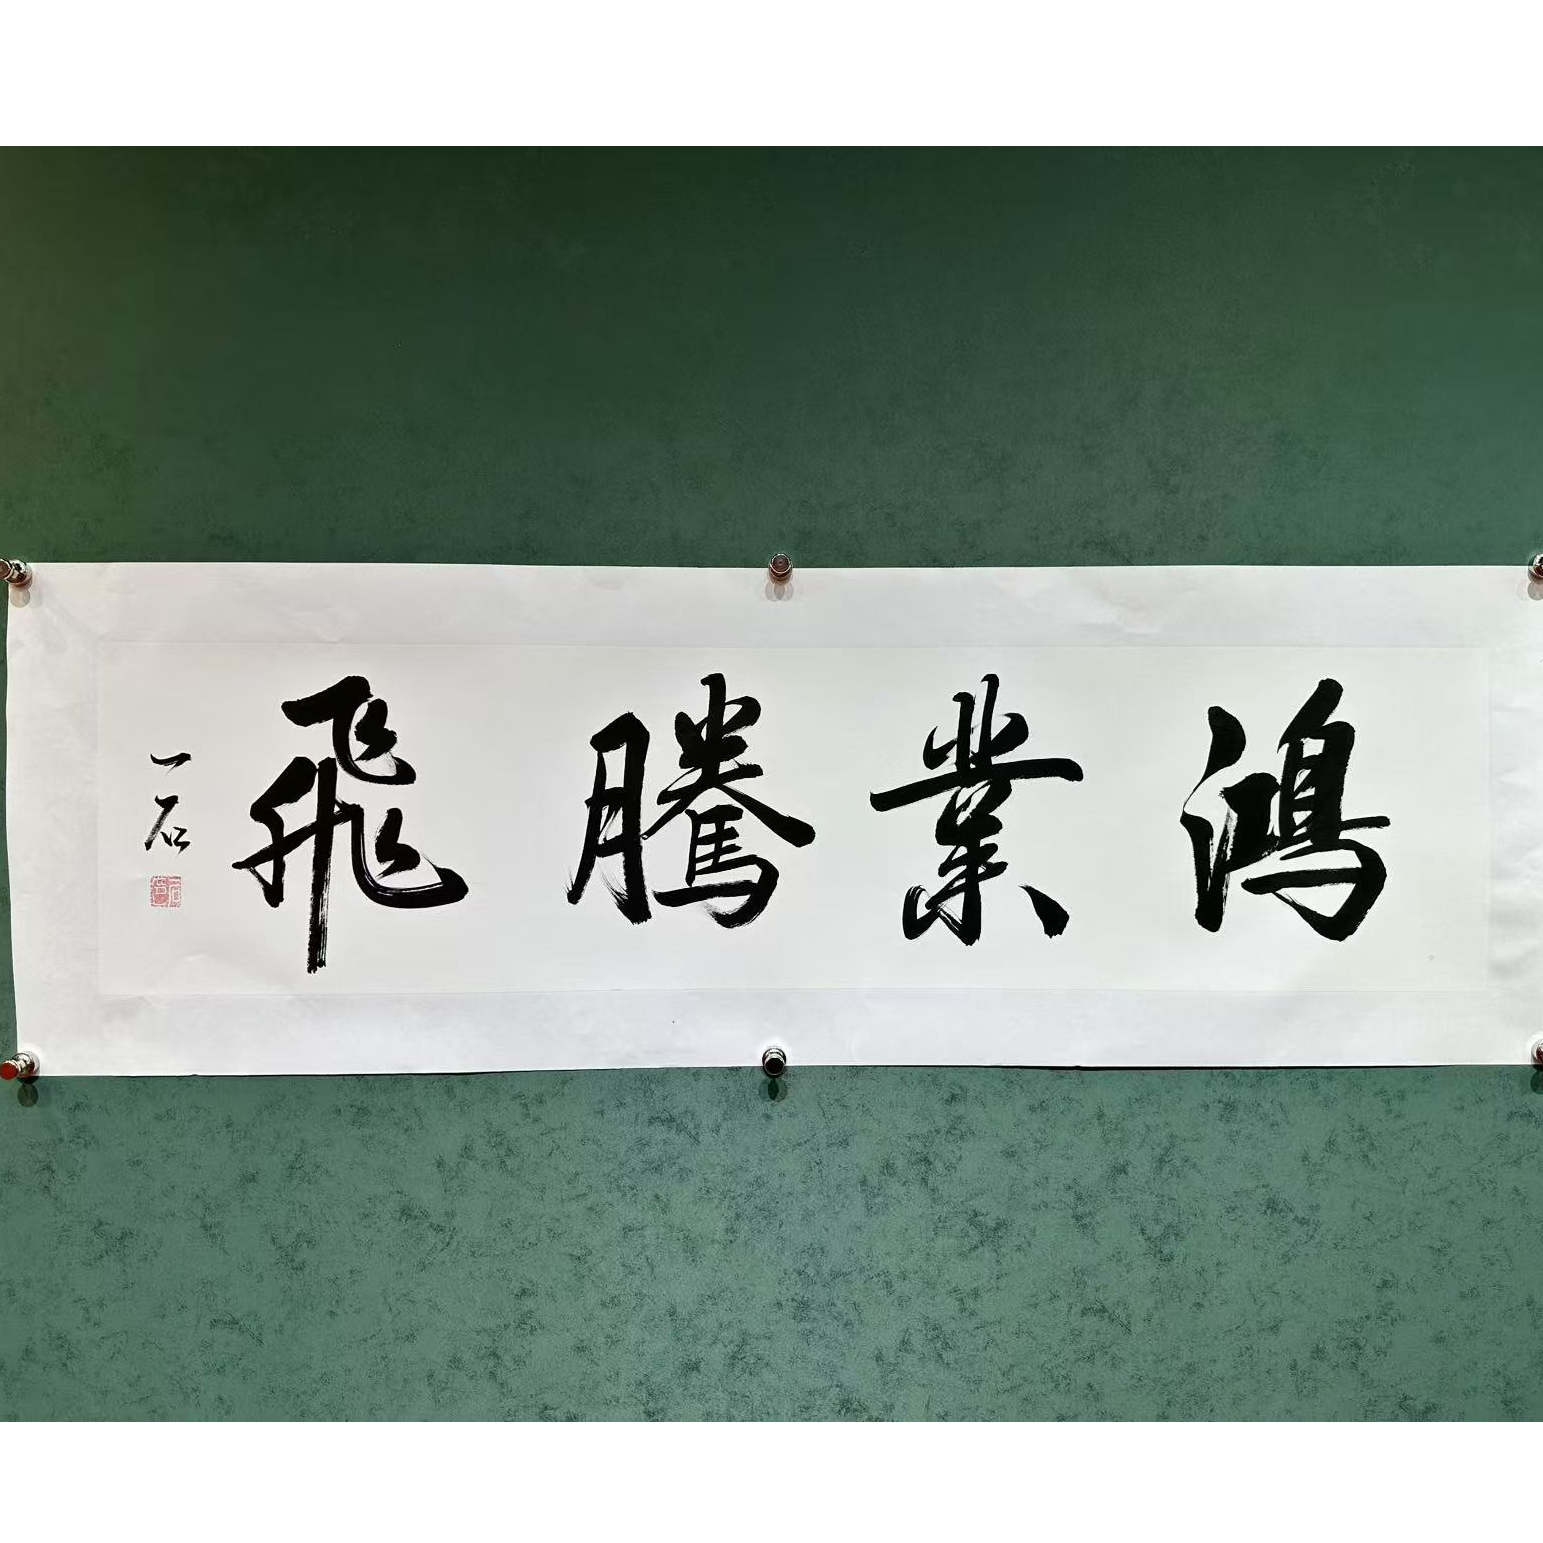 鴻業騰飛
一石